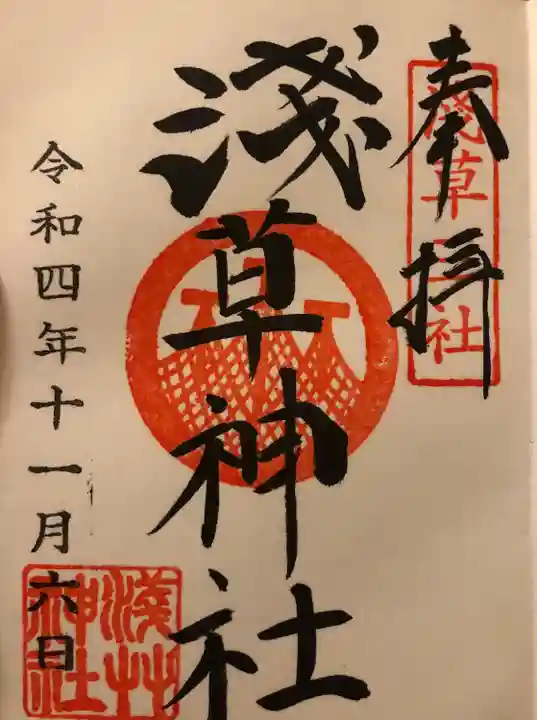 奉拝
淺草三社
淺草神社
令和四年十一月六日
淺草神社